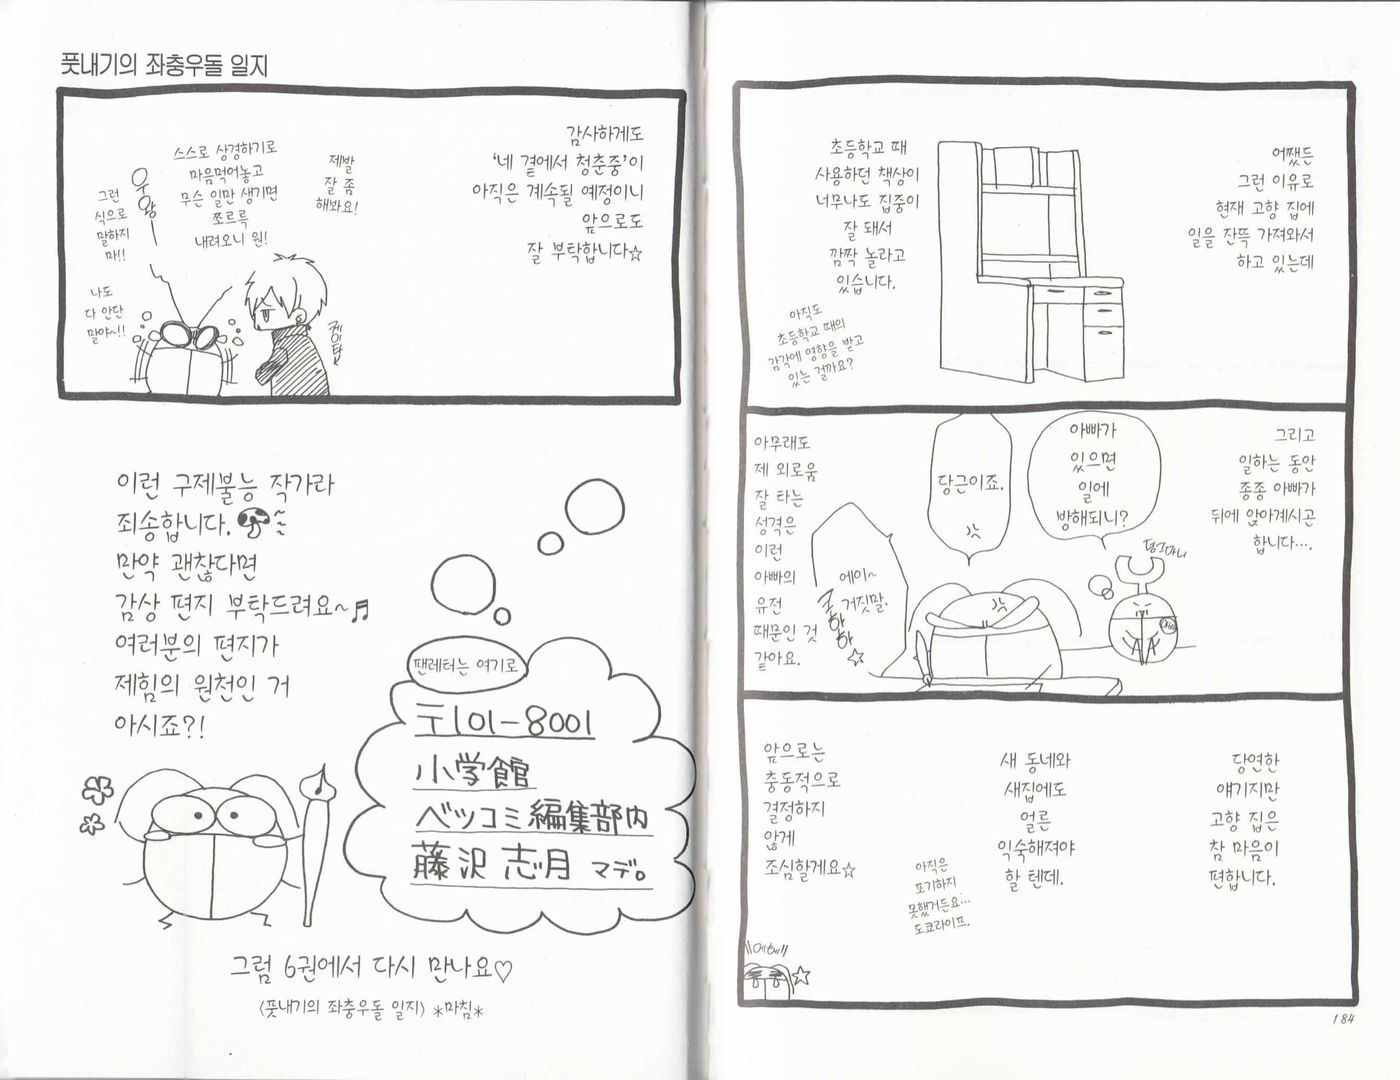 어쨌든
그런 이유로
현재 고향 집에
일을 잔뜩 가져와서
하고 있는데
초등학교 때
사용하던 책상이
너무나도 집중이
잘 돼서
깜짝 놀라고
있습니다.
아직도
초등학교 때의
감각에 영향을 받고
있는 걸까요?
그리고
일하는 동안
종종 아빠가
뒤에 앉아계시곤
합니다….
아빠가
있으면
일에
방해되니?
당근이죠.
에이~
거짓말.
아무래도
제 외로움
잘 타는
성격은
이런
아빠의
유전
때문인 것
같아요.
당연한
얘기지만
고향 집은
참 마음이
편합니다.
새 동네와
새집에도
얼른
익숙해져야
할 텐데.
아직은
포기하지
못했거든요…
도쿄라이프.
앞으로는
충동적으로
결정하지
않게
조심할게요☆
184
풋내기의 좌충우돌 일지
감사하게도
‘네 곁에서 청춘중’이
아직은 계속될 예정이니
앞으로도
잘 부탁합니다☆
제발
잘 좀
해봐요!
스스로 상경하기로
마음먹어놓고
무슨 일만 생기면
쪼르륵
내려오니 원!
케이타
우왕
그런
식으로
말하지
마!!
나도
다 안단
말야~!!
이런 구제불능 작가라
죄송합니다.
만약 괜찮다면
감상 편지 부탁드려요~♬
여러분의 편지가
제힘의 원천인 거
아시죠?!
팬레터는 여기로
〒101-8001
小学館
ベツコミ編集部内
藤沢志月 マデ。
그럼 6권에서 다시 만나요♡
〈풋내기의 좌충우돌 일지〉 *마침*